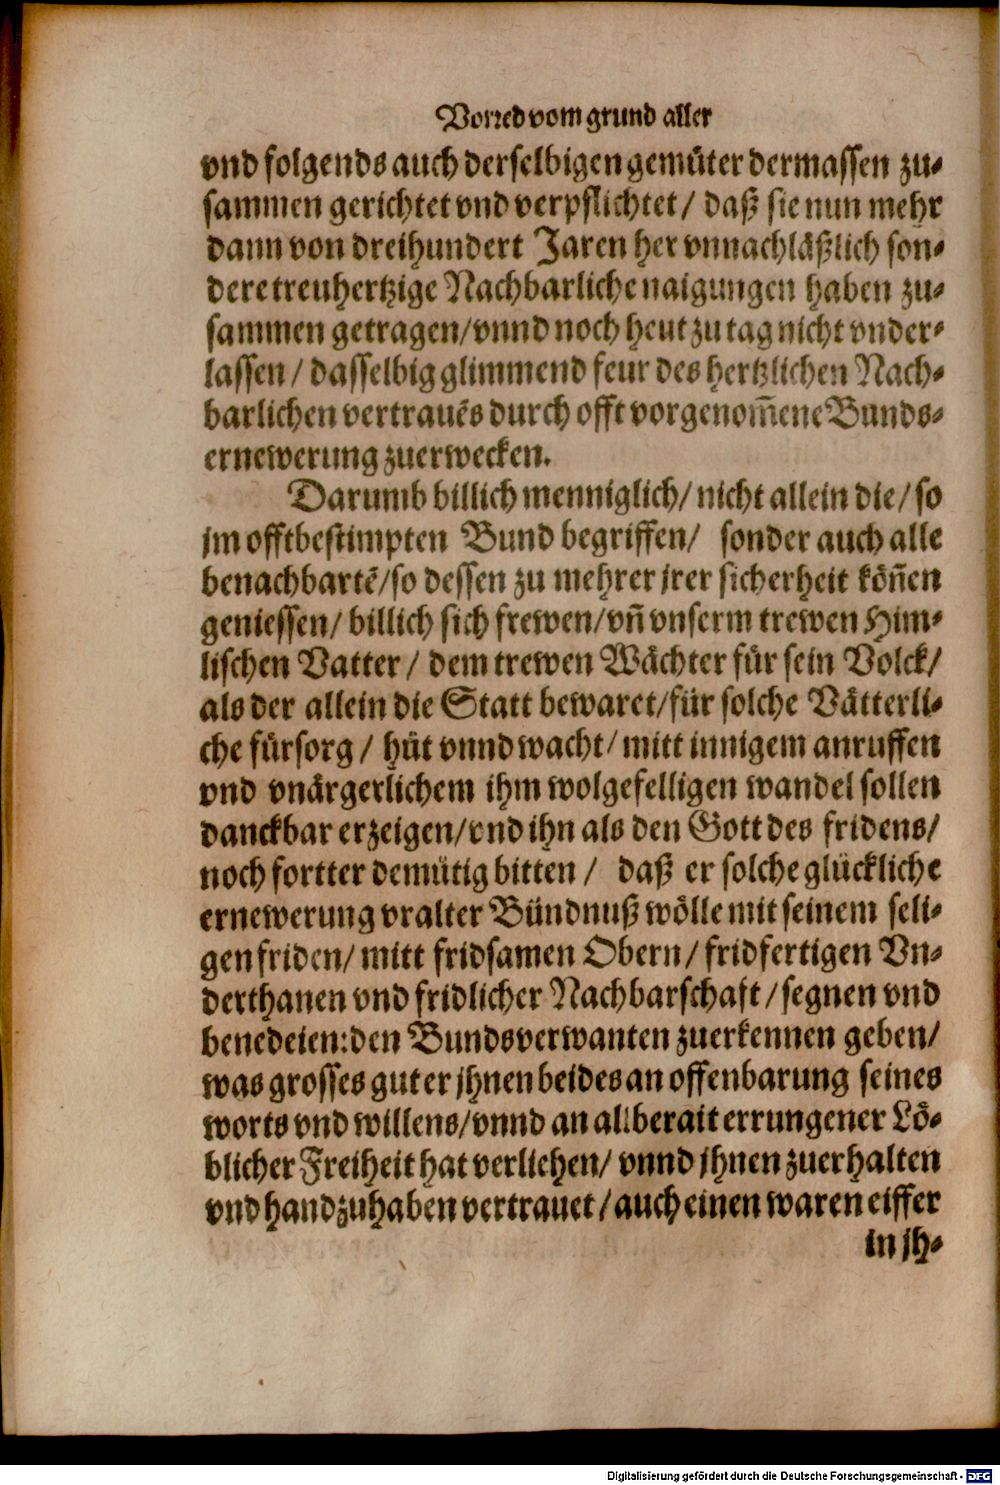 Vorred vom grund aller
vnd folgends auch derselbigen gemüter dermassen zu-
sammen gerichtet vnd verpflichtet / daß sie nun mehr
dann von dreihundert Jaren her vnnachläßlich son-
dere treuhertzige Nachbarliche naigungen haben zu-
sammen getragen/vnnd noch heut zu tag nicht vnder-
lassen / dasselbig glimmend feur des hertzlichen Nach-
barlichen vertrauēs durch offt vorgenom̅ene Bunds-
ernewerung zuerwecken.
Darumb billich menniglich/ nicht allein die/ so
jm offtbestimpten Bund begriffen/ sonder auch alle
benachbartē/so dessen zu mehrer jrer sicherheit kön̅en
geniessen/ billich sich frewen/vn̅ vnserm trewen Him-
lischen Vatter / dem trewen Wächter für sein Volck/
als der allein die Statt bewaret/für solche Vätterli-
che fürsorg / hüt vnnd wacht/ mitt innigem anruffen
vnd vnärgerlichem ihm wolgefelligen wandel sollen
danckbar erzeigen/vnd ihn als den Gott des fridens/
noch fortter demütig bitten / daß er solche glückliche
ernewerung vralter Bündnuß wölle mit seinem seli-
gen friden/ mitt fridsamen Obern/ fridfertigen Vn-
derthanen vnd fridlicher Nachbarschaft / segnen vnd
benedeien: den Bundsverwanten zuerkennen geben/
was grosses gut er jhnen beides an offenbarung seines
worts vnd willens/vnnd an allberait errungener Lö-
blicher Freiheit hat verliehen/ vnnd jhnen zuerhalten
vnd handzuhaben vertrauet / auch einen waren eiffer
in jh-
Digitalisierung gefördert durch die Deutsche Forschungsgemeinschaft - DFG